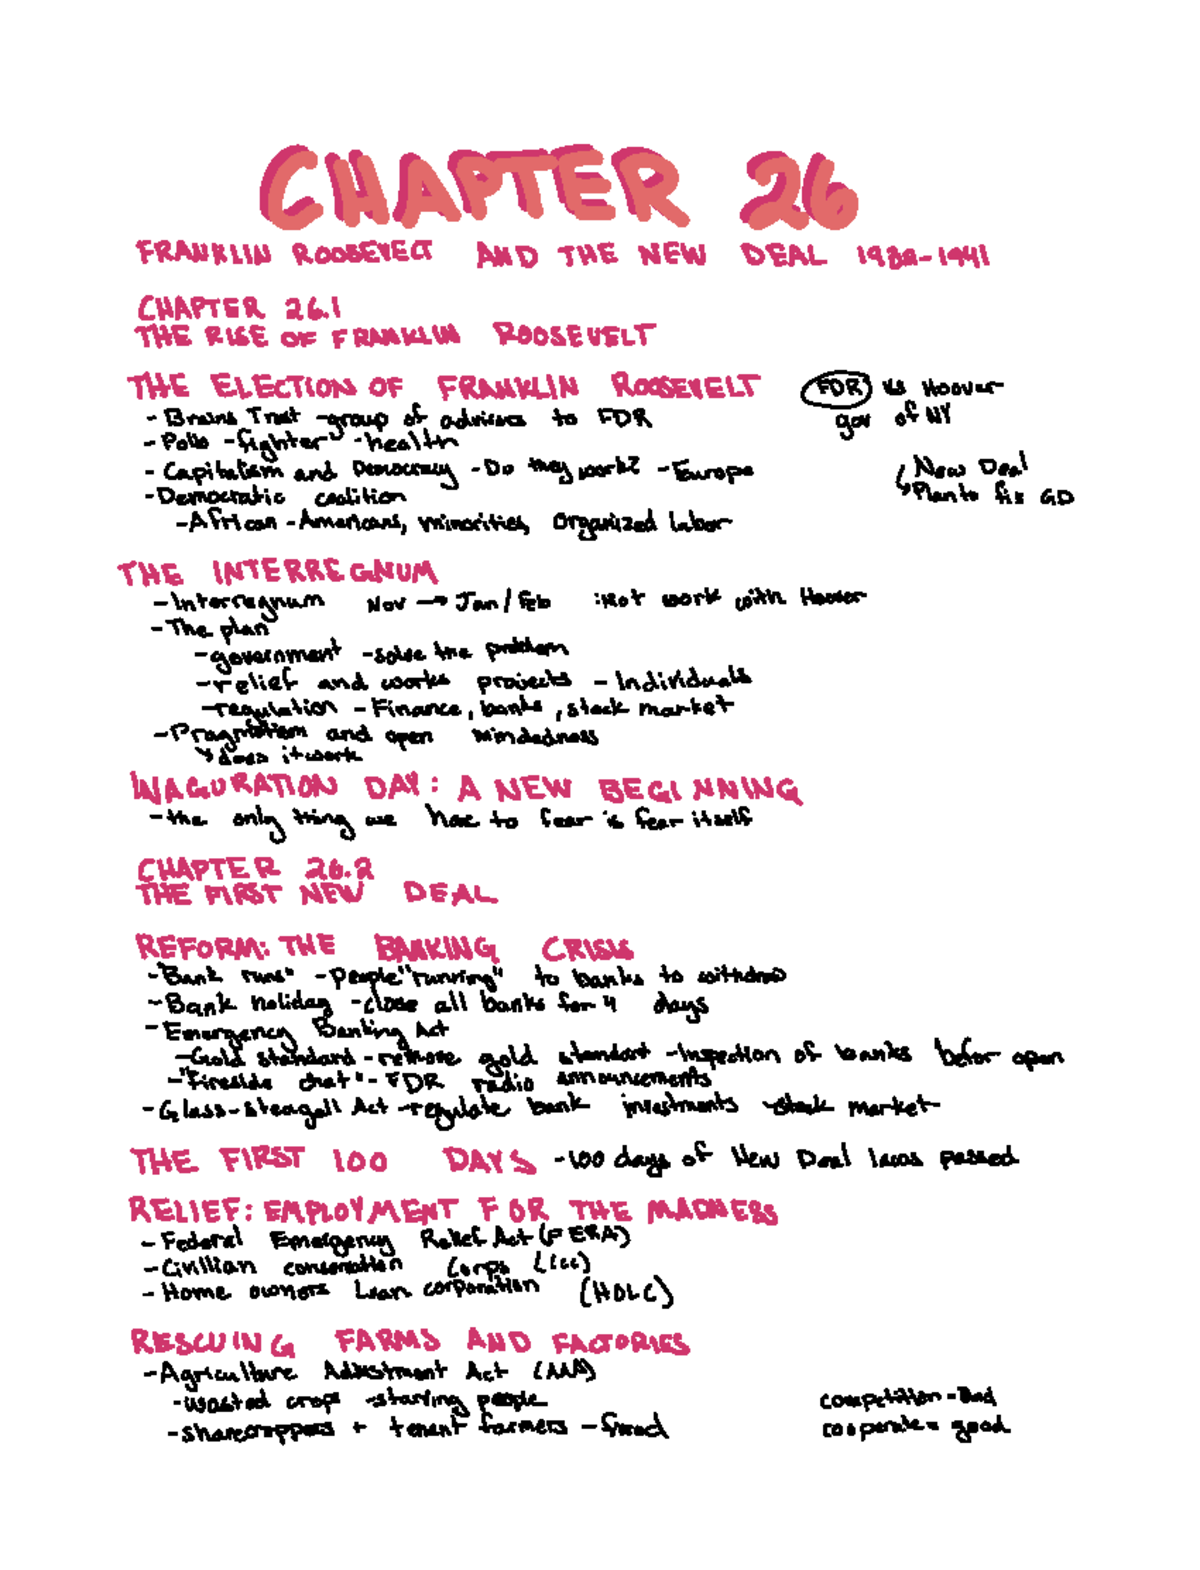 CHAPTER 26
FRANKLIN ROOSEVELT AND THE NEW DEAL 1932-1941
CHAPTER 26.1
THE RISE OF FRANKLIN ROOSEVELT
THE ELECTION OF FRANKLIN ROOSEVELT
FDR vs Hoover
gov of NY
- Brains Trust - group of advisors to FDR
- Polio - "fighter" - health
- Capitalism and Democracy - Do they work? - Europe
New Deal
Plan to fix GD
- Democratic coalition
- African-Americans, minorities, organized labor
THE INTERREGNUM
- Interregnum Nov → Jan/Feb : Not work with Hoover
- The plan
- government - solve the problem
- relief and works projects - Individuals
- regulation - Finance, banks, stock market
- Pragmatism and open mindedness
does it work
INAGURATION DAY: A NEW BEGINNING
- the only thing we have to fear is fear itself
CHAPTER 26.2
THE FIRST NEW DEAL
REFORM: THE BANKING CRISIS
- "Bank runs" - People "running" to banks to withdraw
- Bank holiday - close all banks for 4 days
- Emergency Banking Act
- Gold standard - remove gold standart - Inspection of banks befor open
- "Fireside chat" - FDR radio announcements
- Glass-Steagall Act - regulate bank investments stock market
THE FIRST 100 DAYS - 100 days of New Deal laws passed
RELIEF: EMPLOYMENT FOR THE MADNESS
- Federal Emergency Relief Act (FERA)
- Civillian conservation Corps (CCC)
- Home owners Loan corporation (HOLC)
RESCUING FARMS AND FACTORIES
- Agriculture Adjustment Act (AAA)
- wasted crops - starving people
- sharecroppers + tenent farmers - fired
competition - Bad
cooperate = good